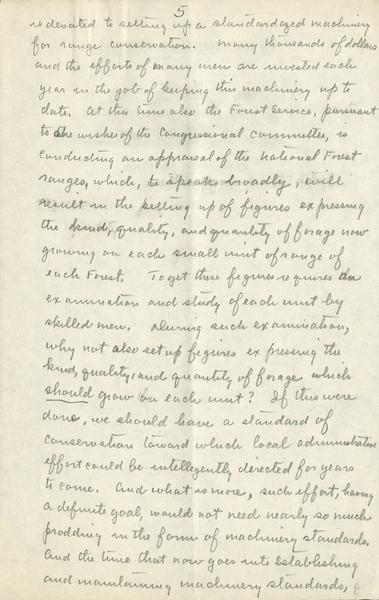 5
is devoted to setting up a standardized machinery
for range conservation. Many thousands of dollars
and the efforts of many men are invested each
year in the job of keeping this machinery up to
date. At this time also the Forest Service, pursuant
to the wishes of the Congressional Committee, is
conducting an appraisal of the National Forest
ranges, which, to speak broadly, will
result in the setting up of figures expressing
the kind, quality, and quantity of forage now
growing on each small unit of range of
each Forest. To get these figures requires the
examination and study of each unit by
skilled men. During such examination,
why not also set up figures expressing the
kind, quality, and quantity of forage which
should grow on each unit? If this were
done, we should have a standard of
conservation toward which local administrative
effort could be intelligently directed for years
to come. And what is more, such effort, having
a definite goal, would not need nearly so much
prodding in the form of machinery standards.
And the time that now goes into establishing
and maintaining machinery standards,